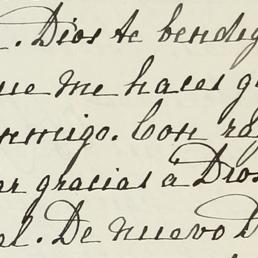 . Dios te bendig
ue me haces g
nemigo. Con ra
ar gracias á Dios
al. De nuevo D